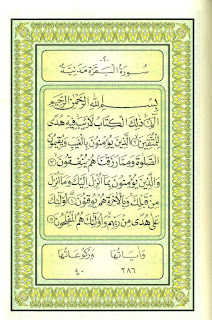 -٢-
سُورَةُ الْبَقَرَةِ مَدَنِيَّةٌ
بِسْمِ اللهِ الرَّحْمٰنِ الرَّحِيْمِ
الٓمّٓ ۚ ذٰلِكَ الْكِتَابُ لَا رَيْبَ فِيْهِ هُدًى
لِلْمُتَّقِيْنَ ۙ الَّذِيْنَ يُؤْمِنُوْنَ بِالْغَيْبِ وَيُقِيْمُوْنَ
الصَّلٰوةَ وَمِمَّا رَزَقْنٰهُمْ يُنْفِقُوْنَ ۙ
وَالَّذِيْنَ يُؤْمِنُوْنَ بِمَا اُنْزِلَ اِلَيْكَ وَمَا اُنْزِلَ
مِنْ قَبْلِكَ وَبِالْاٰخِرَةِ هُمْ يُوْقِنُوْنَ ۗ اُولٰئِكَ
عَلٰى هُدًى مِنْ رَبِّهِمْ وَاُولٰئِكَ هُمُ الْمُفْلِحُوْنَ
وَاٰيَاتُهَا وَرُكُوْعَاتُهَا
٢٨٦ ٤٠